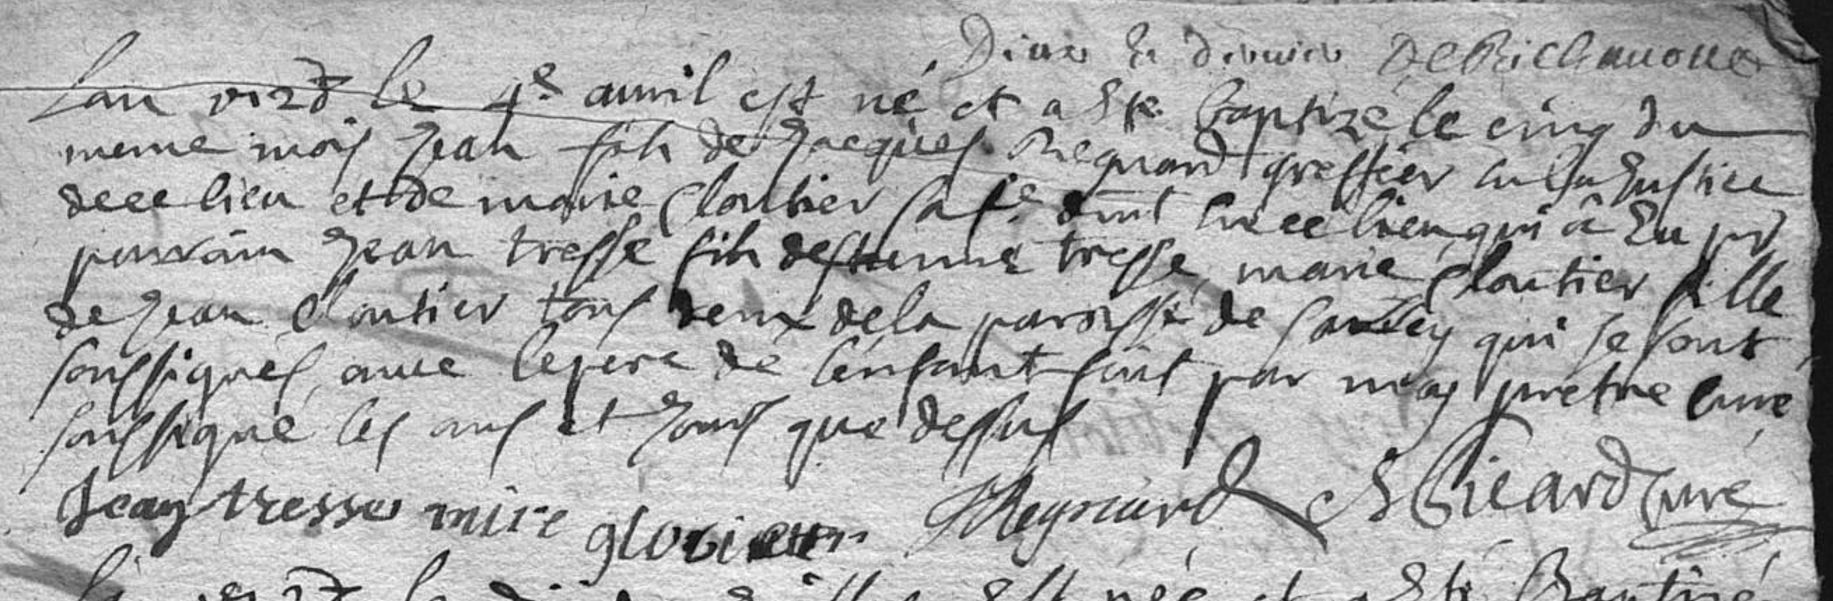 De Richanoue
Lan le 4e auvril est né et a este baptizé le cinq du
meme mois Jean fils de Jacques Regnard greffier en la Justice
de ce lieu et de marie Cloutier sa fe dont en ce lieu qui a Eu pr
parrain Jean tresse fils destienne tresse marie Cloutier fille
de Jean Cloutier tous deux de la paroisse de qui se sont
soussignés avec le pere de lenfant fait par moy pretre curé
soussigné les ans et Jours que dessus
Jean tresse Regnard Picard Curé
né et a esté Baptizé